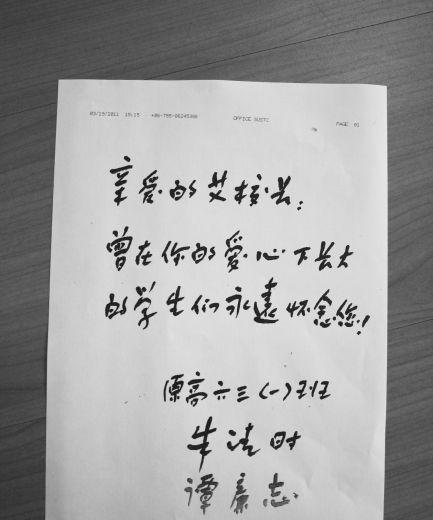 03/19/2011 19:15 +86-755-86245308 OFFICE SUSTC PAGE 01
亲爱的艾校长:
曾在你的爱心下长大
的学生们永远怀念您!
原高六三(一)班
朱清时
谭廉志